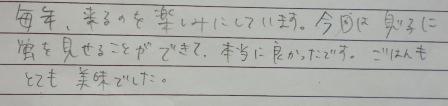 毎年、来るのを楽しみにしています。今回は息子に
蛍を見せることができて、本当に良かったです。ごはんも
とても美味でした。